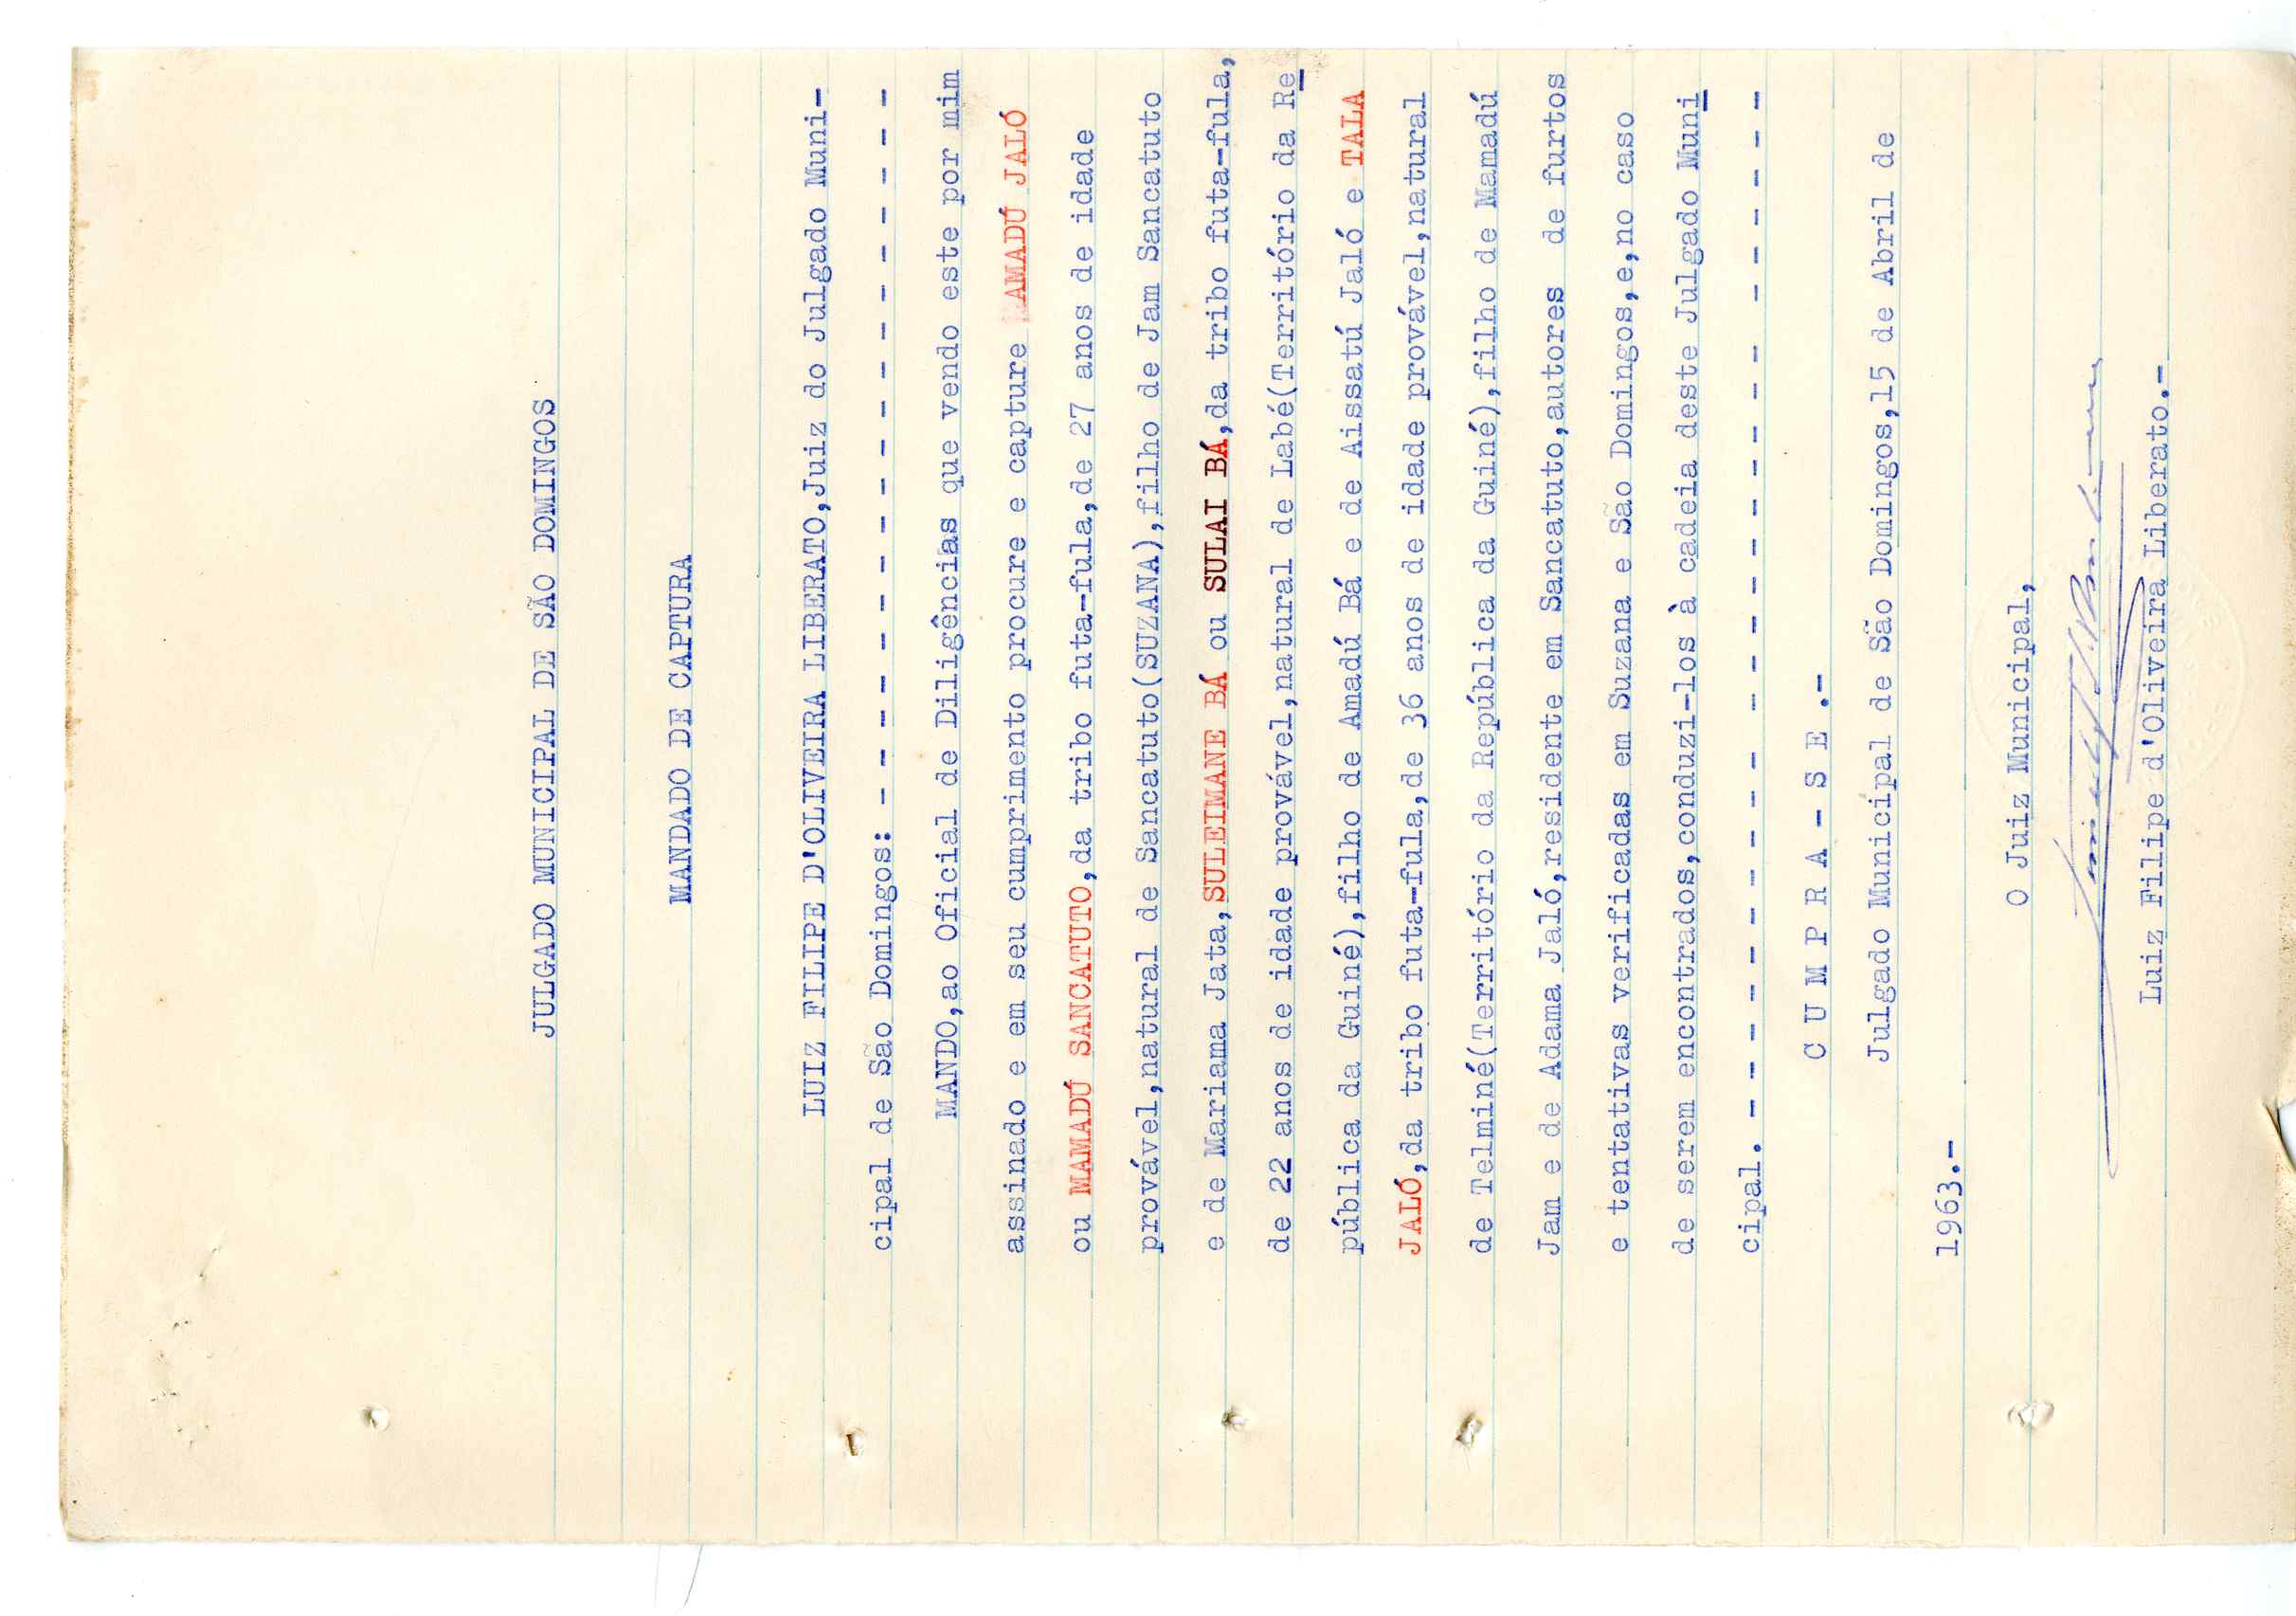 JULGADO MUNICIPAL DE SÃO DOMINGOS
MANDADO DE CAPTURA
LUIZ FILIPE D'OLIVEIRA LIBERATO,Juiz do Julgado Muni-
cipal de São Domingos: - - - - - - - - - - - - - - - - - - - -
MANDO,ao Oficial de Diligências que vendo este por mim
assinado e em seu cumprimento procure e capture MAMADÚ JALÓ
ou MAMADÚ SANCATUTO,da tribo futa-fula,de 27 anos de idade
provável,natural de Sancatuto(SUZANA),filho de Jam Sancatuto
e de Mariama Jata,SULEIMANE BÁ ou SULAI BÁ,da tribo futa-fula,
de 22 anos de idade provável,natural de Labé(Território da Re
pública da Guiné),filho de Amadú Bá e de Aissatú Jaló e TALA
JALÓ,da tribo futa-fula,de 36 anos de idade provável,natural
de Telminé(Território da República da Guiné),filho de Mamadú
Jam e de Adama Jaló,residente em Sancatuto,autores de furtos
e tentativas verificadas em Suzana e São Domingos,e,no caso
de serem encontrados,conduzi-los à cadeia deste Julgado Muni
cipal. - - - - - - - - - - - - - - - - - - - - - - - -
C U M P R A - S E .-
Julgado Municipal de São Domingos,15 de Abril de
1963.-
O Juiz Municipal,
Luiz Filipe d'Oliveira Liberato.-